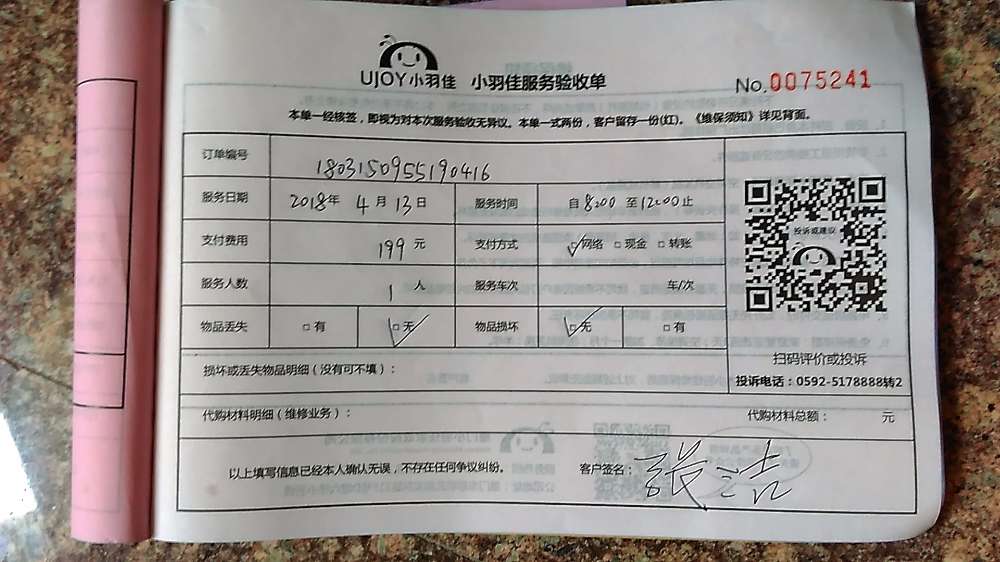 UJOY小羽佳 小羽佳服务验收单 No.0075241
本单一经核签，即视为对本次服务验收无异议。本单一式两份，客户留存一份(红)。《维保须知》详见背面。
订单编号 1803150955190416
服务日期 2018年 4月 13日 服务时间 自8:00至12:00止
支付费用 199元 支付方式 □网络 □现金 □转账
服务人数 1人 服务车次 车/次
物品丢失 □有 □无 物品损坏 □无 □有
投诉或建议
扫码评价或投诉
投诉电话：0592-5178888转2
损坏或丢失物品明细（没有可不填）：
代购材料明细（维修业务）： 代购材料总额： 元
以上填写信息已经本人确认无误，不存在任何争议纠纷。 客户签名：张洁